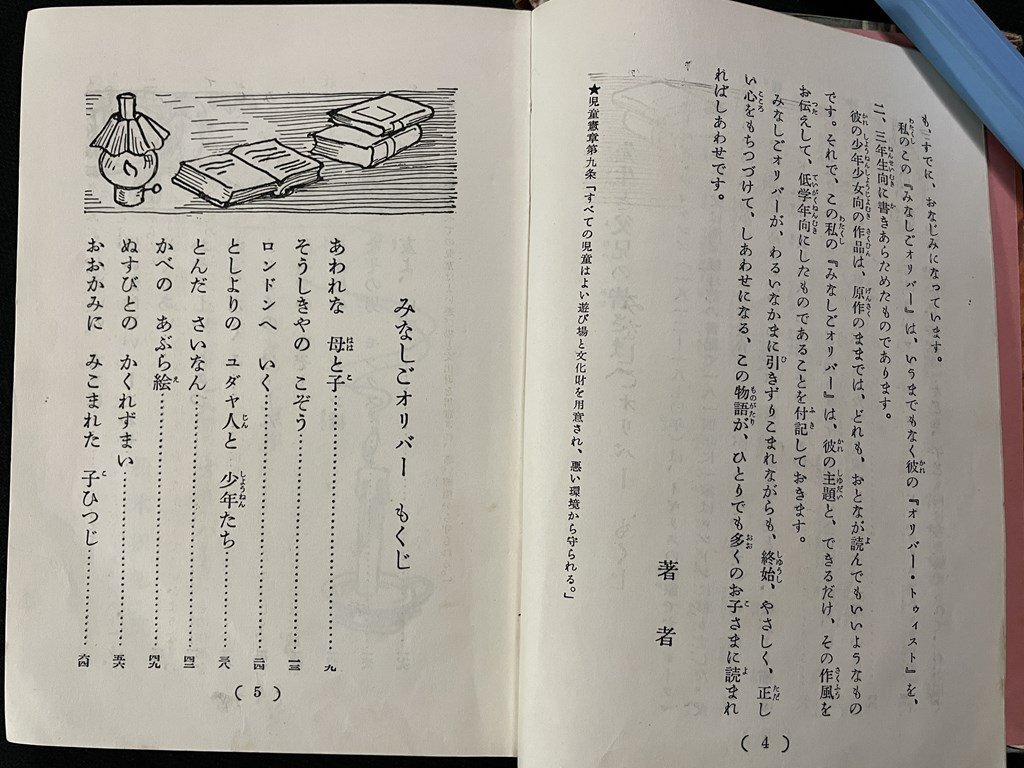 も、すでに、おなじみになっています。
私のこの『みなしごオリバー』は、いうまでもなく彼の『オリバー・トウィスト』を、
二、三年生向に書きあらためたものであります。
彼の少年少女向の作品は、原作のままでは、どれも、おとなが読んでもいいようなもの
です。それで、この私の『みなしごオリバー』は、彼の主題と、できるだけ、その作風を
お伝えして、低学年向にしたものであることを付記しておきます。
みなしごオリバーが、わるいなかまに引きずりこまれながらも、終始、やさしく、正し
い心をもちつづけて、しあわせになる、この物語が、ひとりでも多くのお子さまに読まれ
ればしあわせです。
著者
★児童憲章第九条「すべての児童はよい遊び場と文化財を用意され、悪い環境から守られる。」
(4)
みなしごオリバー もくじ
あわれな 母と子…………九
そうしきやの こぞう…………一三
ロンドンへ いく…………二四
としよりの ユダヤ人と 少年たち…………三八
とんだ さいなん…………四二
かべの あぶら絵…………四九
ぬすびとの かくれずまい…………五六
おおかみに みこまれた 子ひつじ…………六四
(5)